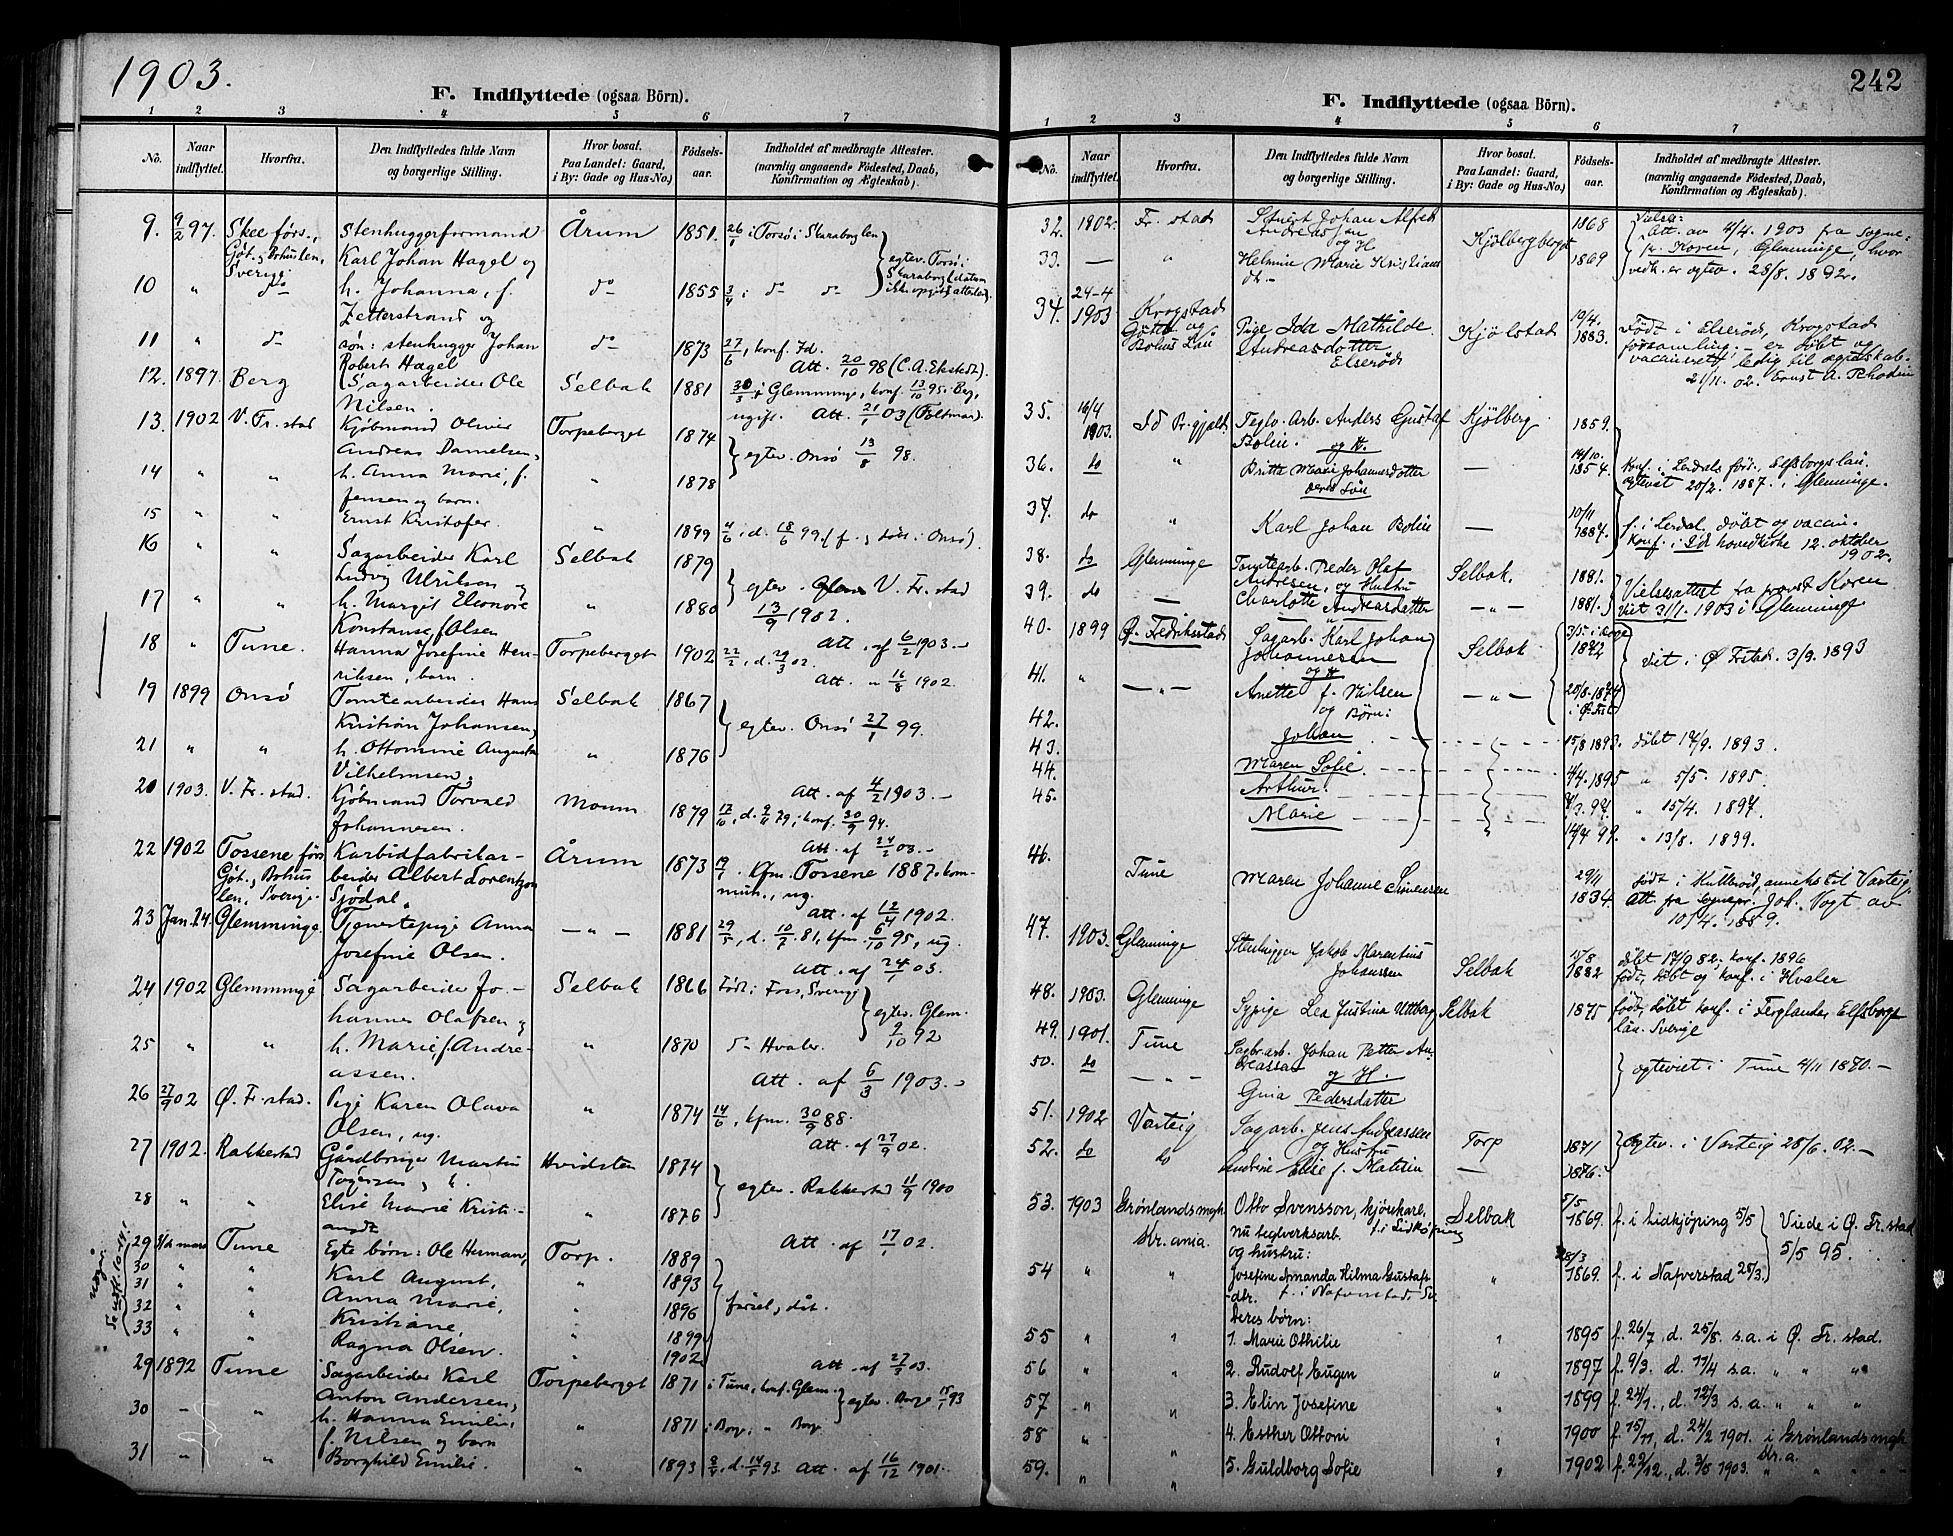 1903.
F. Indflyttede (ogsaa Börn).
1 2 3 4 5 6 7
No.
Naar indflyttet.
Hvorfra.
Den Indflyttedes fulde Navn og borgerlige Stilling.
Hvor bosat. Paa Landet: Gaard, i By: Gade og Hus-No.)
Födsels-aar.
Indholdet af medbragte Attester. (navnlig angaaende Födested, Daab, Konfirmation og Ægteskab).
9. 9/2 97. Skee förs., Stenhuggerformand Årum 1851. 26/1 i Torsö i Skaraborg len
Göt. og Bohuslen, Karl Johan Hagel og egtev. Torsö i
Sverige Skaraborg (datum
10 " do h. Johanna, f. do 1855 3/4 i do do ikke opgit i attesten).
Zetterstrand og
11 " do sön: stenhugger Johan do 1873 27/6, konf. Id.
Robert Hagel Att. 20/10 98 (C. A. Ekstedt).
12. 1897. Berg Sagarbeider Ole Selbak 1881 30/3 i Glemminge, konf. 13/10 95. Berg,
Nilsen. ugift. Att. 21/1 03 (Foltmar).
13. 1902 V. Fr. stad Kjöbmand Oliver Torpeberget 1874
Andreas Danielsen, egtev. Onsö 13/8 98.
14 " " h. Anna Marie, f. " 1878
Jensen og barn.
15 " " Ernst Kristofer. " 1899 4/6, d. 18/6 99. (f. og döbt i Onsö).
16 " " Sagarbeider Karl Selbak 1879
Ludvig Ulriksen og egtev. V. Fr. stad
17 " " h. Margit Eleonore " 1880 13/9 1902.
Konstanse f. Olsen Att. af 6/2 1903.-
18 " Tune. Hanna Josefine Hen- Torpeberget 1902 22/2, d. 29/3 02.
riksen, barn. Att. " 16/8 1902.
19 1899 Onsö Tomtearbeider Hans Selbak 1867
Kristian Johansen, egtev. Onsö 27/1 99.
21 " " h. Ottomine Augusta " 1876
Vilhelmsen. Att. af 4/2 1903.-
20 1903. V. Fr. stad. Kjöbmand Torvald Moum 1879 17/10, d. 9/11 79, konf. 30/9 94.
Johannesen. Att. af 24/2 03.-
22 1902 Tossene förs Karbidfabrikar- Årum 1873 19/7. Kfm. Tossene 1887. kom-
Göt. og Bohus beider Albert Lorentzon mun., ug.
len, Sverige. Sjödal. Att. af 12/4 1902.
23 Jan. 24 Glemminge Tjenestepige Anna - " - 1881 29/5, d. 10/7. 81, kfm. 6/10 95, ug.
Josefine Olsen. Att. af 24/1 03.
24 1902 Glemminge Sagarbeider Jo- Selbak 1866 Födt i Foss, Sverige
hannes Olafsen og egtev. Glem.
25 " " h. Marie f. Andre- " 1870 do Hvaler. 9/10 92
assen. Att. af 6/3 1903.-
26 27/9 02 Ø. Fr. stad. Pige Karen Olava " 1874 14/6, kfm. 30/9 88.
Olsen, ug. Att. af 27/9 02.
27 1902. Rakkestad Gårdbruger Martin Hvidsten 1874
Tögersen, h. egtev. Rakkestad 11/9 1900
28 " " Elise Marie Kristi- " 1876
andt Att. af 17/1 02.
29 mars Tune Egte börn: Ole Herman, Torp. 1889
30 " " Karl August, 1893
31 " " Anna Marie, 1896 födsel, dåb.
32 " Kristiane, " 1899
33 " " Ragna Olsen. " 1902
29 1892 Tune Sagarbeider Karl Torpeberget 1871 i Tune, konf. Glem.
Anton Andersen, Att. af 27/3 03.
30 - " h. Hanna Emilie, " 1871 i Borge, " Borge
f. Nilsen og barn
31 " " Borghild Emilie. " 1893 d. 14/5 93 Att. af 16/12 1901.-

242
F. Indflyttede (ogsaa Börn).
1 2 3 4 5 6 7
No.
Naar indflyttet.
Hvorfra.
Den Indflyttedes fulde Navn og borgerlige Stilling.
Hvor bosat. Paa Landet: Gaard, i By: Gade og Hus-No.)
Födsels-aar.
Indholdet af medbragte Attester. (navnlig angaaende Födested, Daab, Konfirmation og Ægteskab).
32. 1902. Fr. stad Johan Alfred 1868 Vielse:
Andreassen Att. av 4/4. 1903 fra sogne-
og H Kjölberget pr. Koren, Glemminge, hvor
33. - " Helmine Marie Kristians 1869 vedk. er egtev. 25/8. 1892.
dr.-
34. 24-4 1903 Krogstad Pige Ida Mathilde Kjölstad 19/4. 1883. Födt i Elseröd, Krogstad
Götb. og Andreasdotter forsamling - er döbt og
Bohus Län Elseröd vaccineret, ledig til ægteskab.
21/11. 02. Ernst A. Rhodin
35. 16/4 1903. Id Pr.gjeld Teglv. Arb. Anders Gustaf Kjölberg 1859.
Bolin. og H.
36. do " Britta Maria Johannesdotter - 14/10. 1854. Konf. i Lerdals förs., Elfsborgs län.
deres Sön egteviet 20/2. 1887. i Glemminge.
37. do " Karl Johan Bolin - 10/11 1887. f. i Lerdal, döbt og vaccin.
konf. i Idd hovedkirke 12. oktober 1902.
38. do Glemminge Tomtearb. Peder Olaf Selbak. 1881. Vielsesattest fra provst Koren
Andresen, og Hustru
39. do - Charlotte Andreasdatter - " - 1881. viet 31/1. 1903 i Glemminge
40. 1899 Ø. Fredriksstad Sagarb. Karl Johan Selbak 1872 viet i Ø. Frstad. 3/9. 1893
Johannesen
og H
41. " - " - Anette f. Nilsen - " - 20/8. 1874 i Ø. Frst.
og Börn:
42. Johan 15/8 1893. döbt 17/9. 1893.
43. Maren Sofie. 4/4. 1895 " 5/5. 1895.
44. Arthur. 97. " 15/4. 1897.
45. Marie 14/4 99. " 13/8. 1899.
46. Tune Maren Johanne Simensen 29/11 1834. födt i Hulleröd, anneks til Varteig.
Att. fra Sognepr. Joh. Vogt av
10/4. 1889.
47. 1903. Glemminge Stenhugger Jakob Marentius Selbak 1882 döbt 17/9 82, konf. 1896
Johanssen födt, döbt og konf. i Hvaler
48. 1903. Glemminge Sypige Lea Justina Uttberg Selbak 1875 födt, döbt konf. i Ferglanda Elfsborgs
län. Sverige
49. 1901. Tune Sagbr.arb. Johan Petter An-
50. do - " - dreassen og H. egteviet i Tune 4/11 1870.-
Gina Pedersdatter
51. 1902 Varteig Sagarb. Jens Andreassen Torp 1871 Egtev. i Varteig 28/6. 02.-
og Hustru
52. do do Andrine Elise f. - 1876.
53. 1903 Grönlands mgh. Otto Svensson, kjörekarl, Selbak 5/5 1869. f. i Lidkjöping 5/5 Viede i Ø. Fr. stad
Kr.ania. nu teglverksarb. f. i Lidköping 5/5 95.
og hustru:
54 " " Josefine Amanda Hilma Gustafs " 28/3 1869. f. i Nafverstad 28/3.
-dtr. f. i Nafverstad, Sv.
deres börn:
55 " " 1. Marie Othilie " 1895 f. 26/7, d. 25/8. s.a. i Ø. Fr. stad.
56 " " 2. Rudolf Eugen " 1897 f. 9/3. d. 11/4 s.a. " "
57 " " 3. Elin Josefine " 1899 f. 24/1., d. 12/3 s.a. " " "
58 " " 4. Esther Ottoni " 1900 f. 15/11, d. 24/2 1901. i Grönlands mgh.
Kr.a.
59. " " 5. Guldborg Sofie " 1902 f. 22/12., d. 3/5 1903. " " "